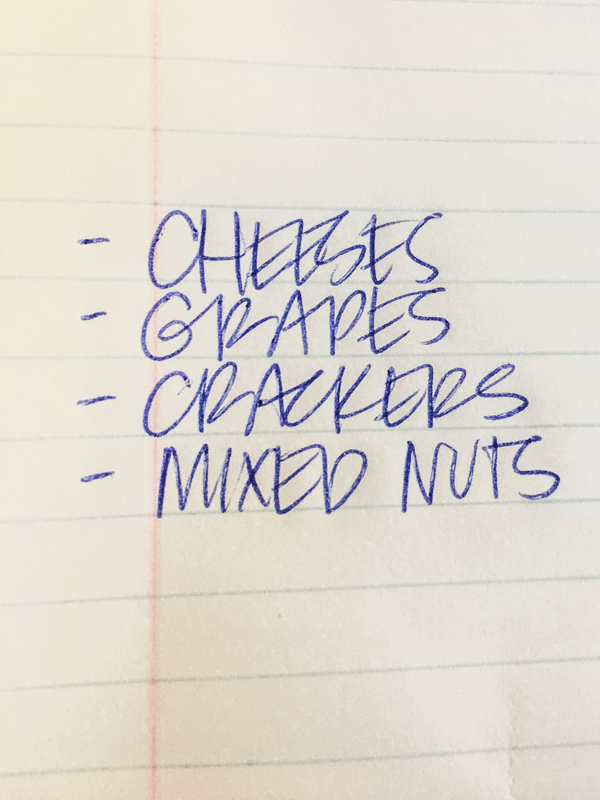 - CHEESES
- GRAPES
- CRACKERS
- MIXED NUTS